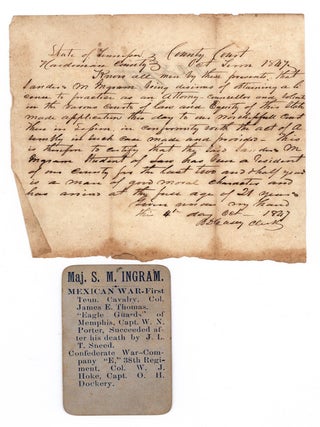 State of Tennessee } County Court
Hardeman County } Oct Term 1847
Know all men by these presents, that
Sandir M Ingram being desirous of obtaining a li
cense to practice as Attorney Counsellor and Solicitor
in the various Courts of law and Equity of this State
made application this day to our Worshipfull Court
then in session in conformity with the act of A
in such case made and provided This
is therefore to certify that the said M
Ingram Student of law has been a resident
of our County for the last two and a half years
is a man of good moral character and
has arrived at the full age of 21 years
Given under my hand
this 4th day Oct 1847
Clerk
Maj. S. M. INGRAM.
MEXICAN WAR-First
Tenn. Cavalry, Col.
James E. Thomas.
"Eagle Guards" of
Memphis, Capt. W. N.
Porter, Succeeded af
ter his death by J. L.
T. Sneed.
Confederate War-Com-
pany "E," 38th Regi-
ment. Col. W. J.
Hoke, Capt. O. H.
Dockery.